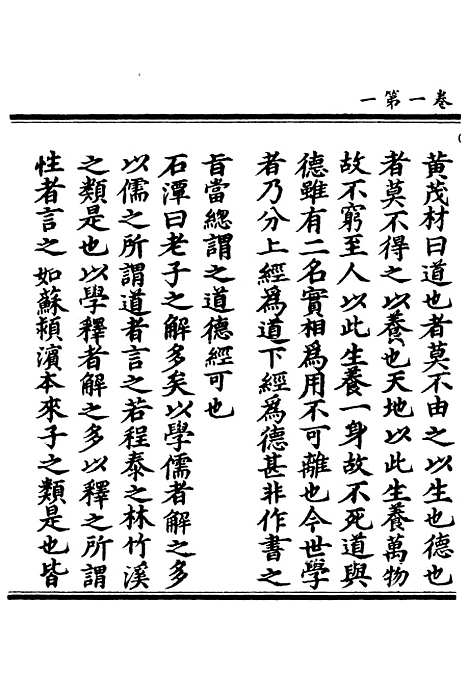 卷一第一
黃茂材曰道也者莫不由之以生也德也
者莫不得之以養也天地以此生養萬物
故不窮至人以此生養一身故不死道與
德雖有二名實相為用不可離也今世學
者乃分上經為道下經為德甚非作書之
旨當總謂之道德經可也
石潭曰老子之解多矣以學儒者解之多
以儒之所謂道者言之若程泰之林竹溪
之類是也以學釋者解之多以釋之所謂
性者言之如蘇潁濱本來子之類是也皆